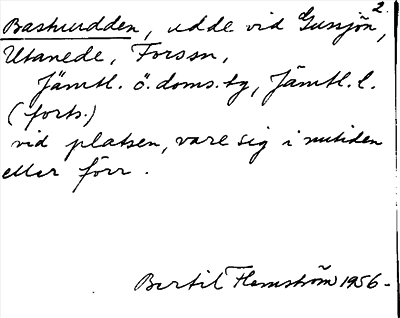 2.
Bastuudden, udde vid Gussjön,
Utanede, Forssn,
Jämtl. ö. doms.tg, Jämtl. l.
(forts.)
vid platsen, vare sig i nutiden
eller förr.
Bertil Flemström 1956-